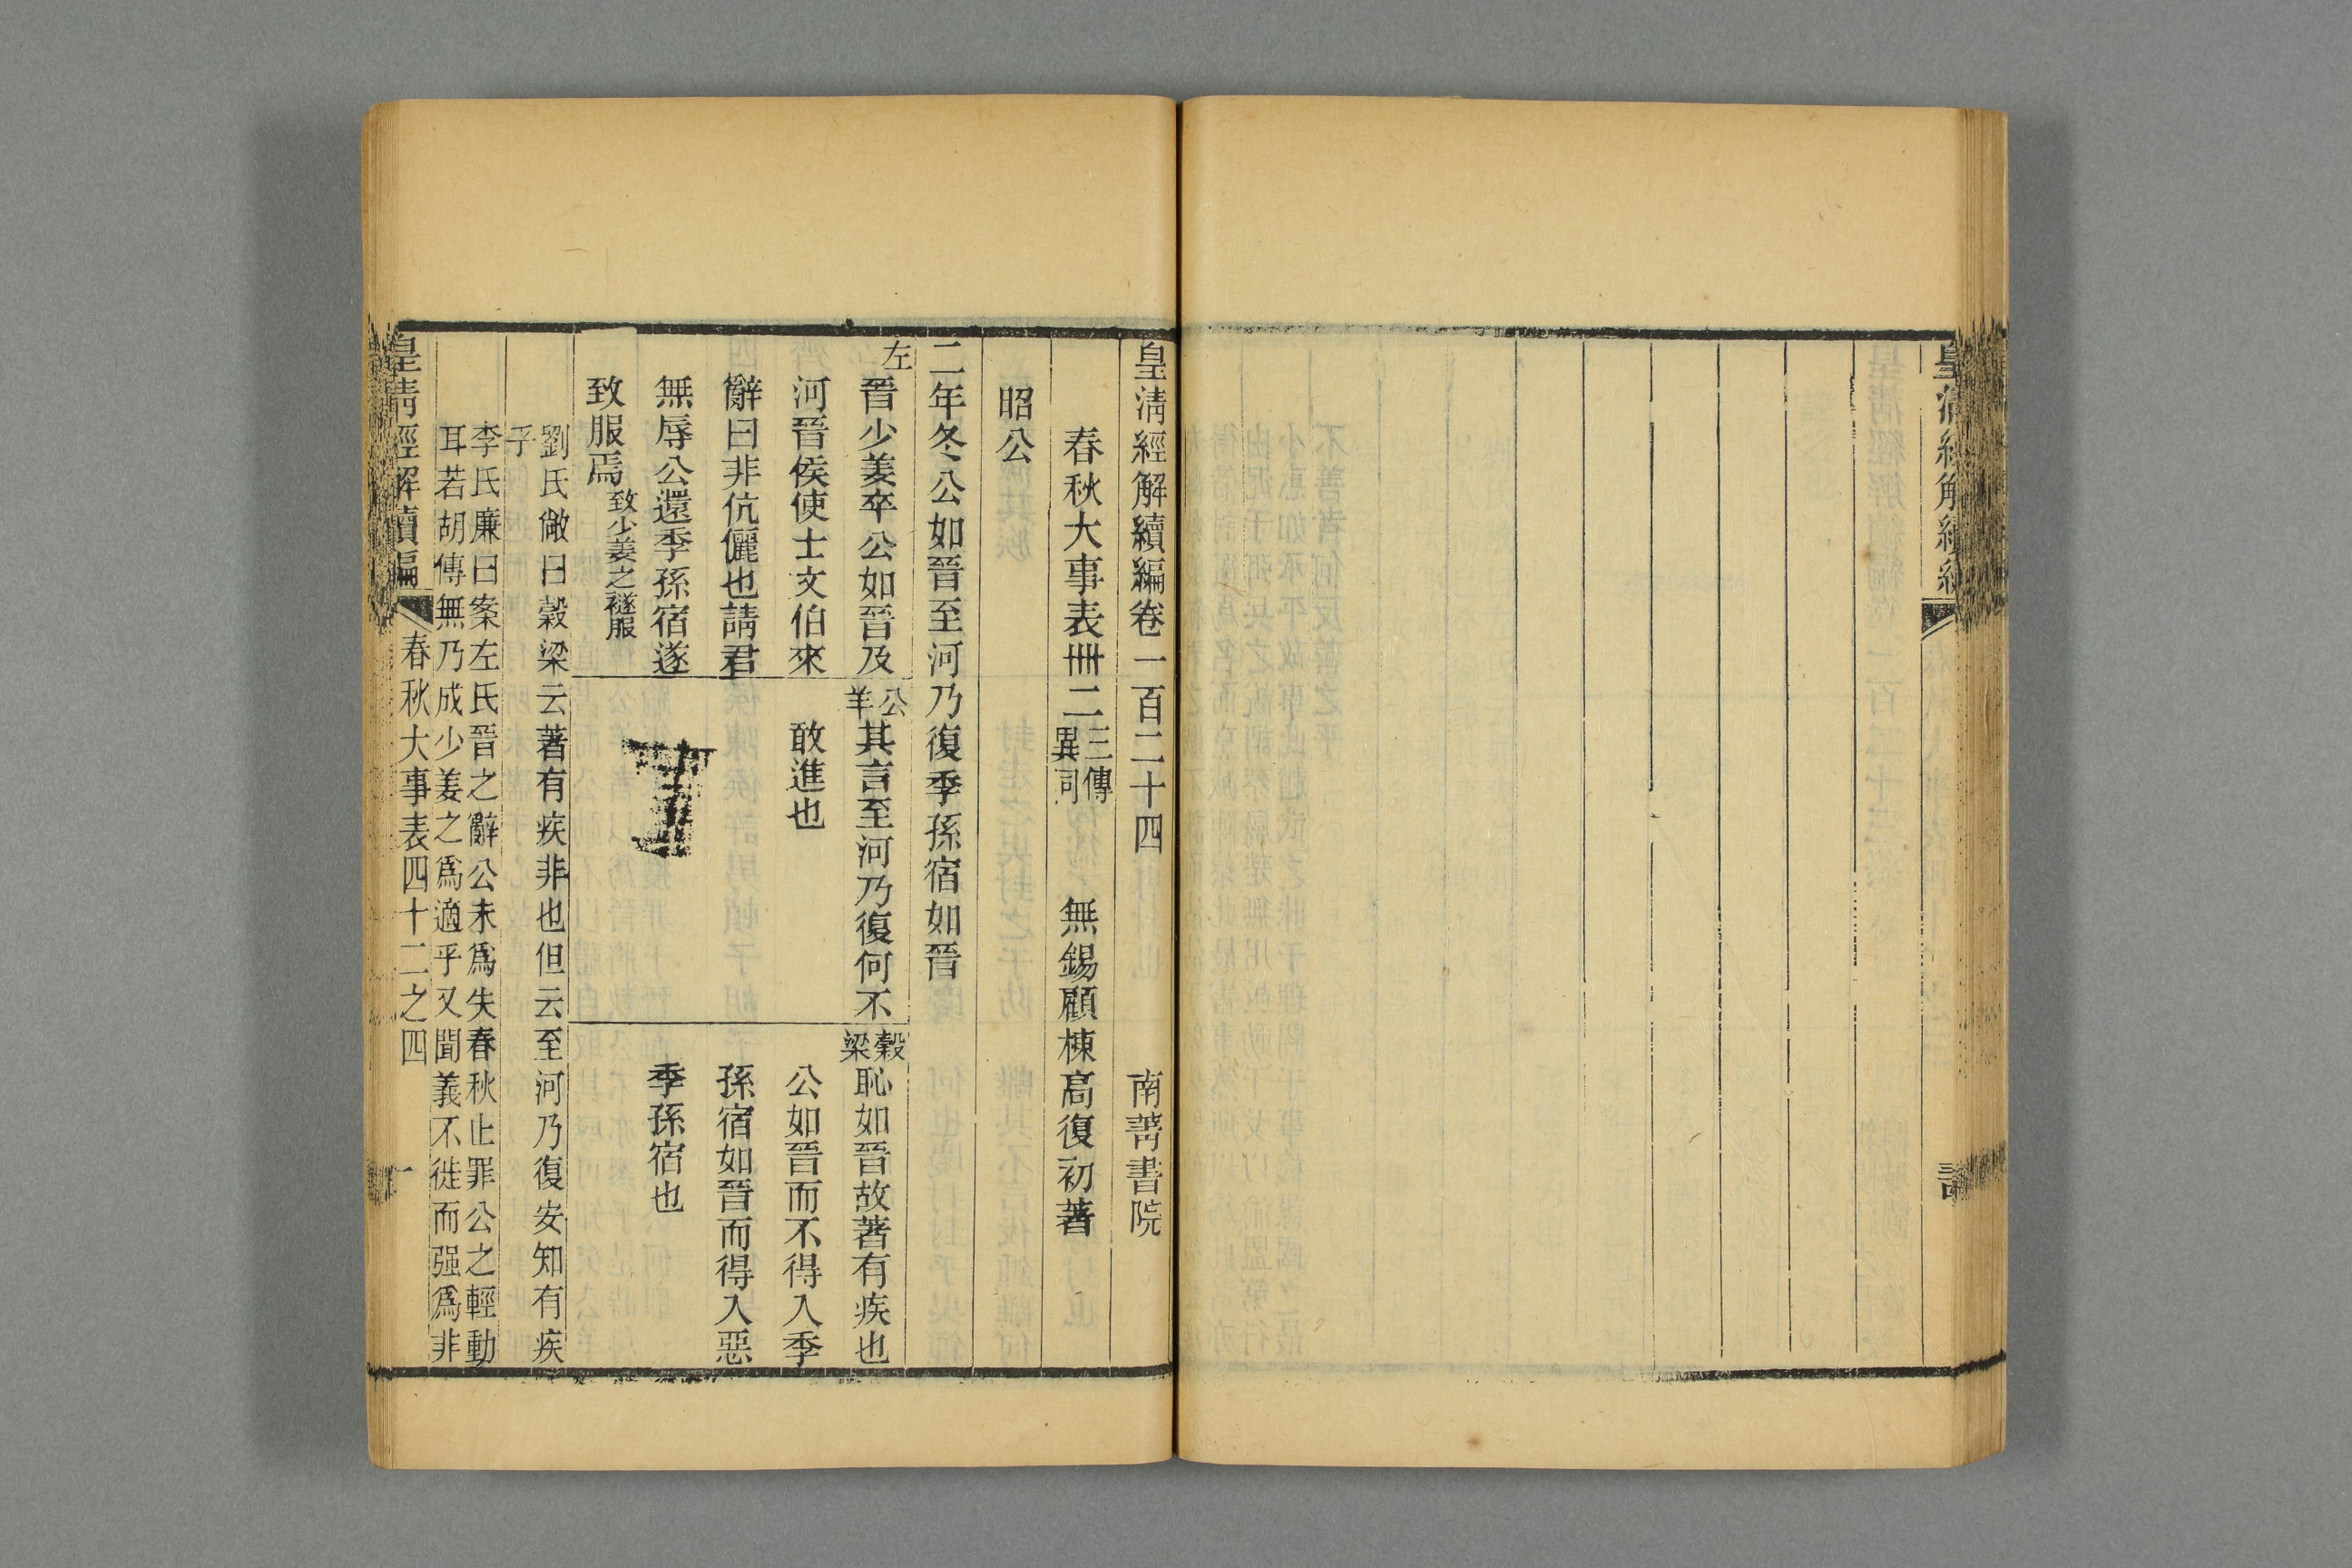 皇清經解續編
皇清經解續編卷一百二十四 南菁書院
春秋大事表卌二三傳異同 無錫顧棟高復初著
昭公
二年冬公如晉至河乃復季孫宿如晉
左
晉少姜卒公如晉及
河晉侯使士文伯來
辭曰非伉儷也請君
無辱公還季孫宿遂
致服焉致少姜之襚服
公羊
其言至河乃復何不
敢進也
穀梁
恥如晉故著有疾也
公如晉而不得入季
孫宿如晉而得入惡
季孫宿也
劉氏敞曰穀梁云著有疾非也但云至河乃復安知有疾
乎
李氏廉曰案左氏晉之辭公未爲失春秋止罪公之輕動
耳若胡傳無乃成少姜之爲適乎又聞義不徙而强爲非
皇清經解續編 春秋大事表四十二之四 一